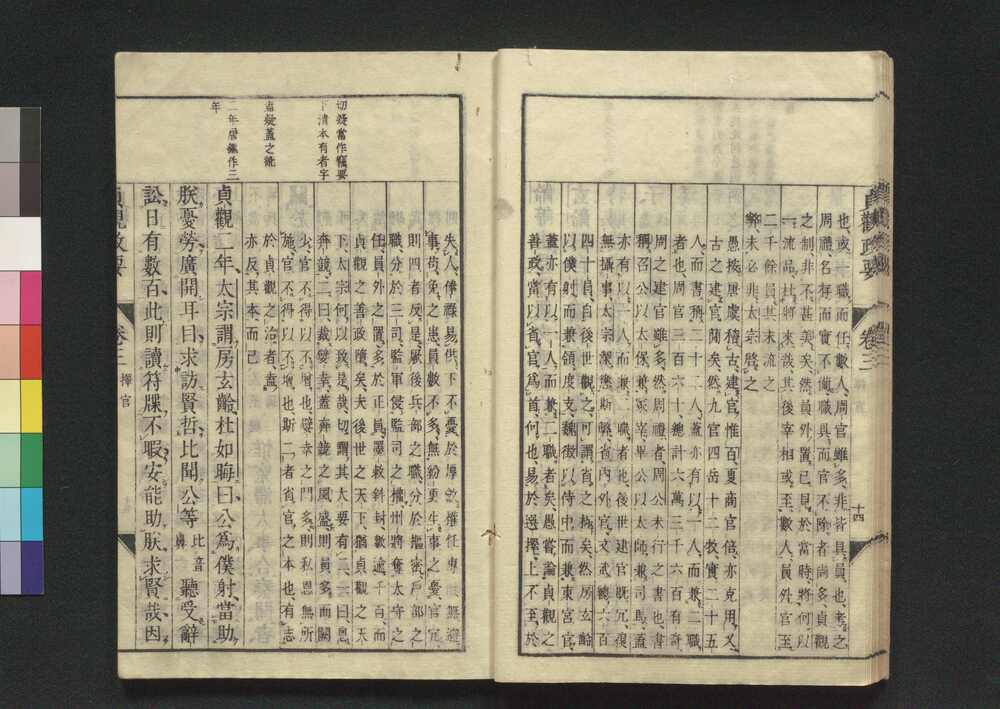 貞觀政要 卷三 十四
也或一職而任數人周官雖多非皆具員也考之
周禮名存而實不備職具而官不除者尚多貞觀
之制非不甚美矣然員外置已見於當時將何以
一流品杜將來哉其後宰相或至數人員外官至
二千餘員其末流之
弊未必非太宗啓之
愚按唐虞稽古建官惟百夏商官倍亦克用乂
古之建官簡矣然九官四岳十二牧實二十五
人而書稱二十二人蓋亦有以一人而兼二職
者也周官三百六十總計六萬三千六百有奇
周之建官雖多然周禮者周公未行之書也書
稱召公以太保兼冢宰畢公以太師兼司馬蓋
亦有以一人而兼二職者也後世建官既冗復
無攝事太宗深懲斯弊省內外官文武總六百
四十員自後世觀之可謂省之極矣然房玄齡
以僕射而兼領度支魏徵以侍中而兼東宮官
蓋亦有以一人而兼二職者矣愚嘗論貞觀之
善政當以省官爲首何也易於選擇上不至於
失人俸祿易供下不憂於厚斂權任專
事苟免之患員數不多無紛更生事之憂官冗
則四者反是厥後兵部之職分於樞密戶部之
職分於三司監軍侵監司之權州將奪太守之
任員外之置多於正員墨敕斜封數逾千百而
貞觀之善政隳矣夫後世之天下猶貞觀之天
下太宗何以致是哉切謂其大要有二一曰息
奔競二曰裁嬖幸蓋奔競之風盛則員多而闕
少官不得以不增也嬖幸之門多則私恩無所
施官不得以不增也斯二者省官之本也有志
於貞觀之治者盍
亦反其本而已
貞觀二年太宗謂房玄齡杜如晦曰公爲僕射當助
朕憂勞廣開耳目求訪賢哲比聞公等 比音鼻 聽受辭
訟日有數百此則讀符牒不暇安能助朕求賢哉因
貞觀政要 卷三 擇官
切疑當作竊要
下淸本有者字
盍疑蓋之訛
二年唐鑑作三
年